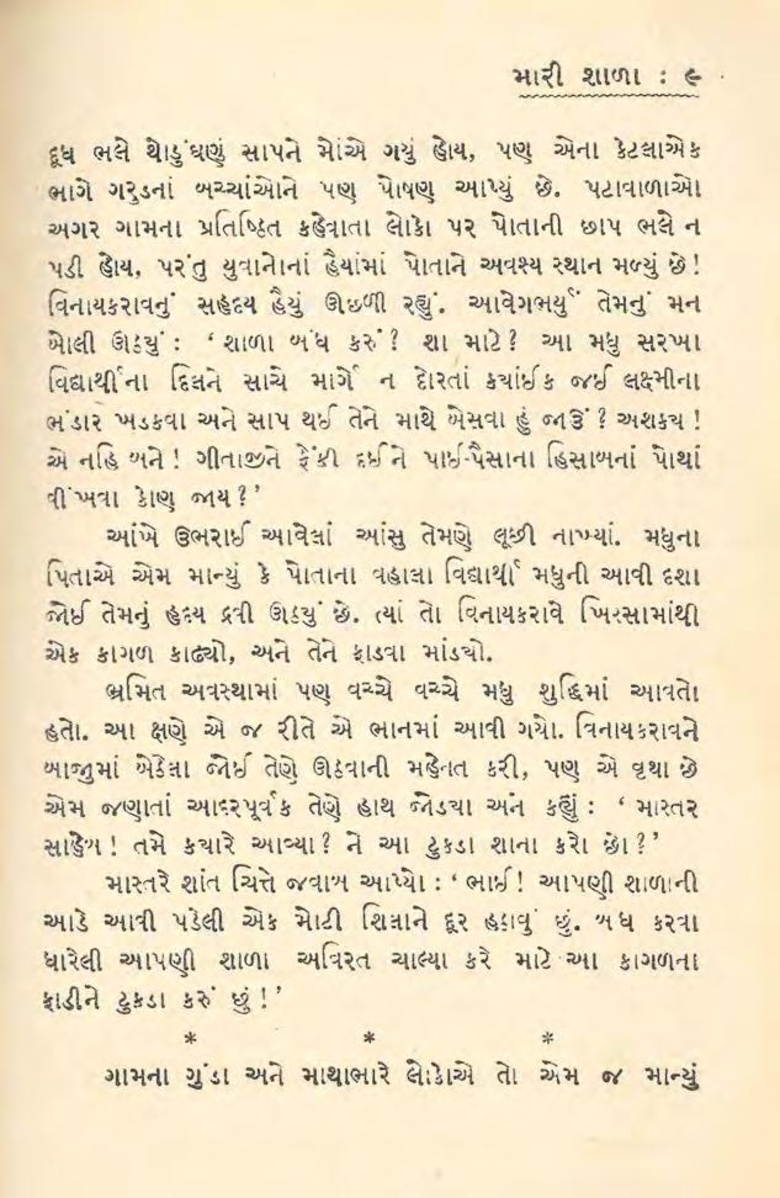 મારી શાળા : ૯
દૂધ ભલે થોડુંઘણું સાપને મોંએ ગયું હોય, પણ એના કેટલાએક
ભાગે ગરુડનાં બચ્ચાંઓને પણ પોષણ આપ્યું છે. પટાવાળાઓ
અગર ગામના પ્રતિષ્ઠિત કહેવાતા લોકો પર પોતાની છાપ ભલે ન
પડી હોય, પરંતુ યુવાનોનાં હૈયાંમાં પોતાને અવશ્ય સ્થાન મળ્યું છે!
વિનાયકરાવનું સહૃદય હૈયું ઊછળી રહ્યું. આવેગભર્યું તેમનું મન
બોલી ઊઠ્યું : ‘ શાળા બંધ કરું? શા માટે? આ મધુ સરખા
વિદ્યાર્થીના દિલને સાચે માર્ગે ન દોરતાં ક્યાંઈક જઈ લક્ષ્મીના
ભંડાર ખડકવા અને સાપ થઈ તેને માથે બેસવા હું જાઉં? અશક્ય !
એ નહિ બને! ગીતાજીને ફેંકી દઈને પાઈ-પૈસાના હિસાબનાં પોથાં
વીંખવા કોણ જાય?’
આંખે ઉભરાઈ આવેલાં આંસુ તેમણે લૂછી નાખ્યાં. મધુના
પિતાએ એમ માન્યું કે પોતાના વહાલા વિદ્યાર્થી મધુની આવી દશા
જોઈ તેમનું હૃદય દ્રવી ઊઠ્યું છે. ત્યાં તો વિનાયકરાવે ખિસ્સામાંથી
એક કાગળ કાઢ્યો, અને તેને ફાડવા માંડ્યો.
ભ્રમિત અવસ્થામાં પણ વચ્ચે વચ્ચે મધુ શુદ્ધિમાં આવતો
હતો. આ ક્ષણે એ જ રીતે એ ભાનમાં આવી ગયો. વિનાયકરાવને
બાજુમાં બેઠેલા જોઈ તેણે ઊઠવાની મહેનત કરી, પણ એ વૃથા છે
એમ જણાતાં આદરપૂર્વક તેણે હાથ જોડ્યા અને કહ્યું : ‘ માસ્તર
સાહેબ! તમે ક્યારે આવ્યા? ને આ ટુકડા શાના કરો છો?’
માસ્તરે શાંત ચિત્તે જવાબ આપ્યો : ‘ ભાઈ! આપણી શાળાની
આડે આવી પડેલી એક મોટી શિલાને દૂર હઠાવું છું. બંધ કરવા
ધારેલી આપણી શાળા અવિરત ચાલ્યા કરે માટે આ કાગળના
ફાડીને ટુકડા કરું છું!’
* * *
ગામના ગુંડા અને માથાભારે લોકોએ તો એમ જ માન્યું